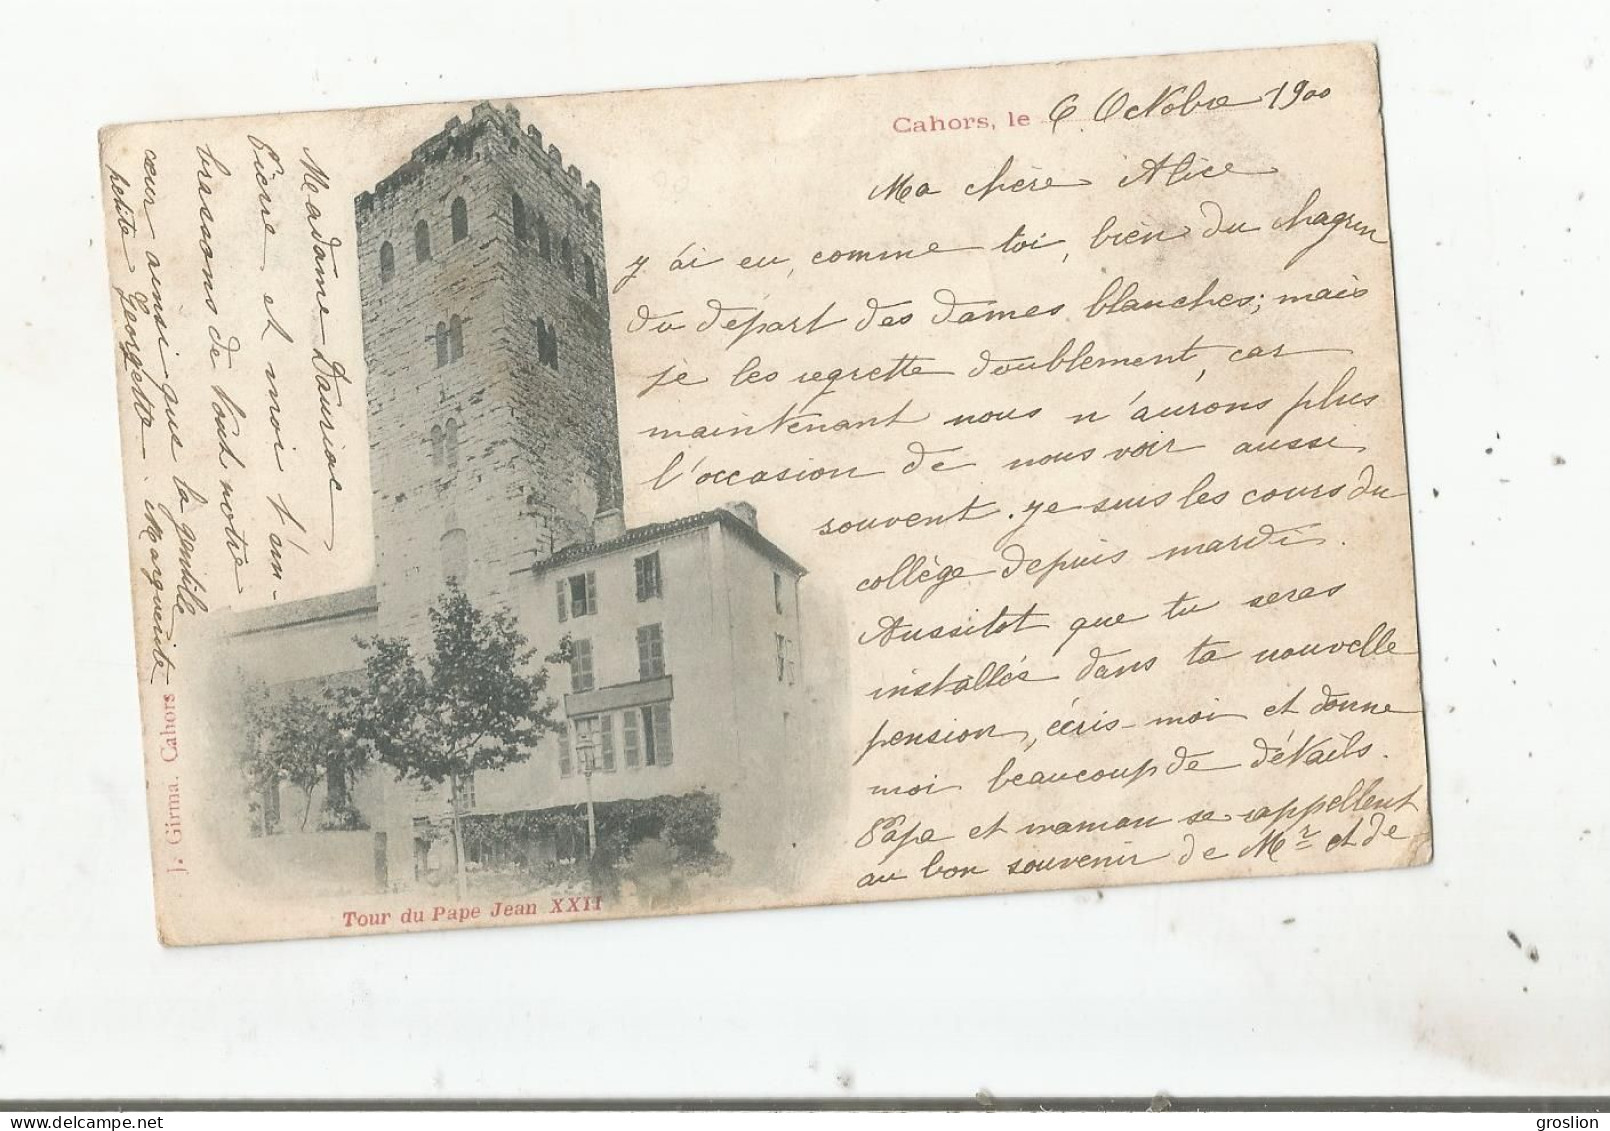 Cahors, le 6 Octobre 1900
Ma chère Alice
J'ai eu, comme toi, bien du chagrin
du départ des dames blanches; mais
je les regrette doublement, car
maintenant nous n'aurons plus
l'occasion de nous voir aussi
souvent. Je suis les cours du
collège depuis mardi.
Aussitôt que tu seras
installés dans ta nouvelle
pension, écris-moi et donne
moi beaucoup de détails.
Papa et maman se rappellent
au bon souvenir de Mr et de
Meadame Dauriac
Pierre et moi t'em-
brassons de tout notre
cœur ainsi que la gentille
petite Georgette. Marguerite
J. Girma. Cahors
Tour du Pape Jean XXII
groslion